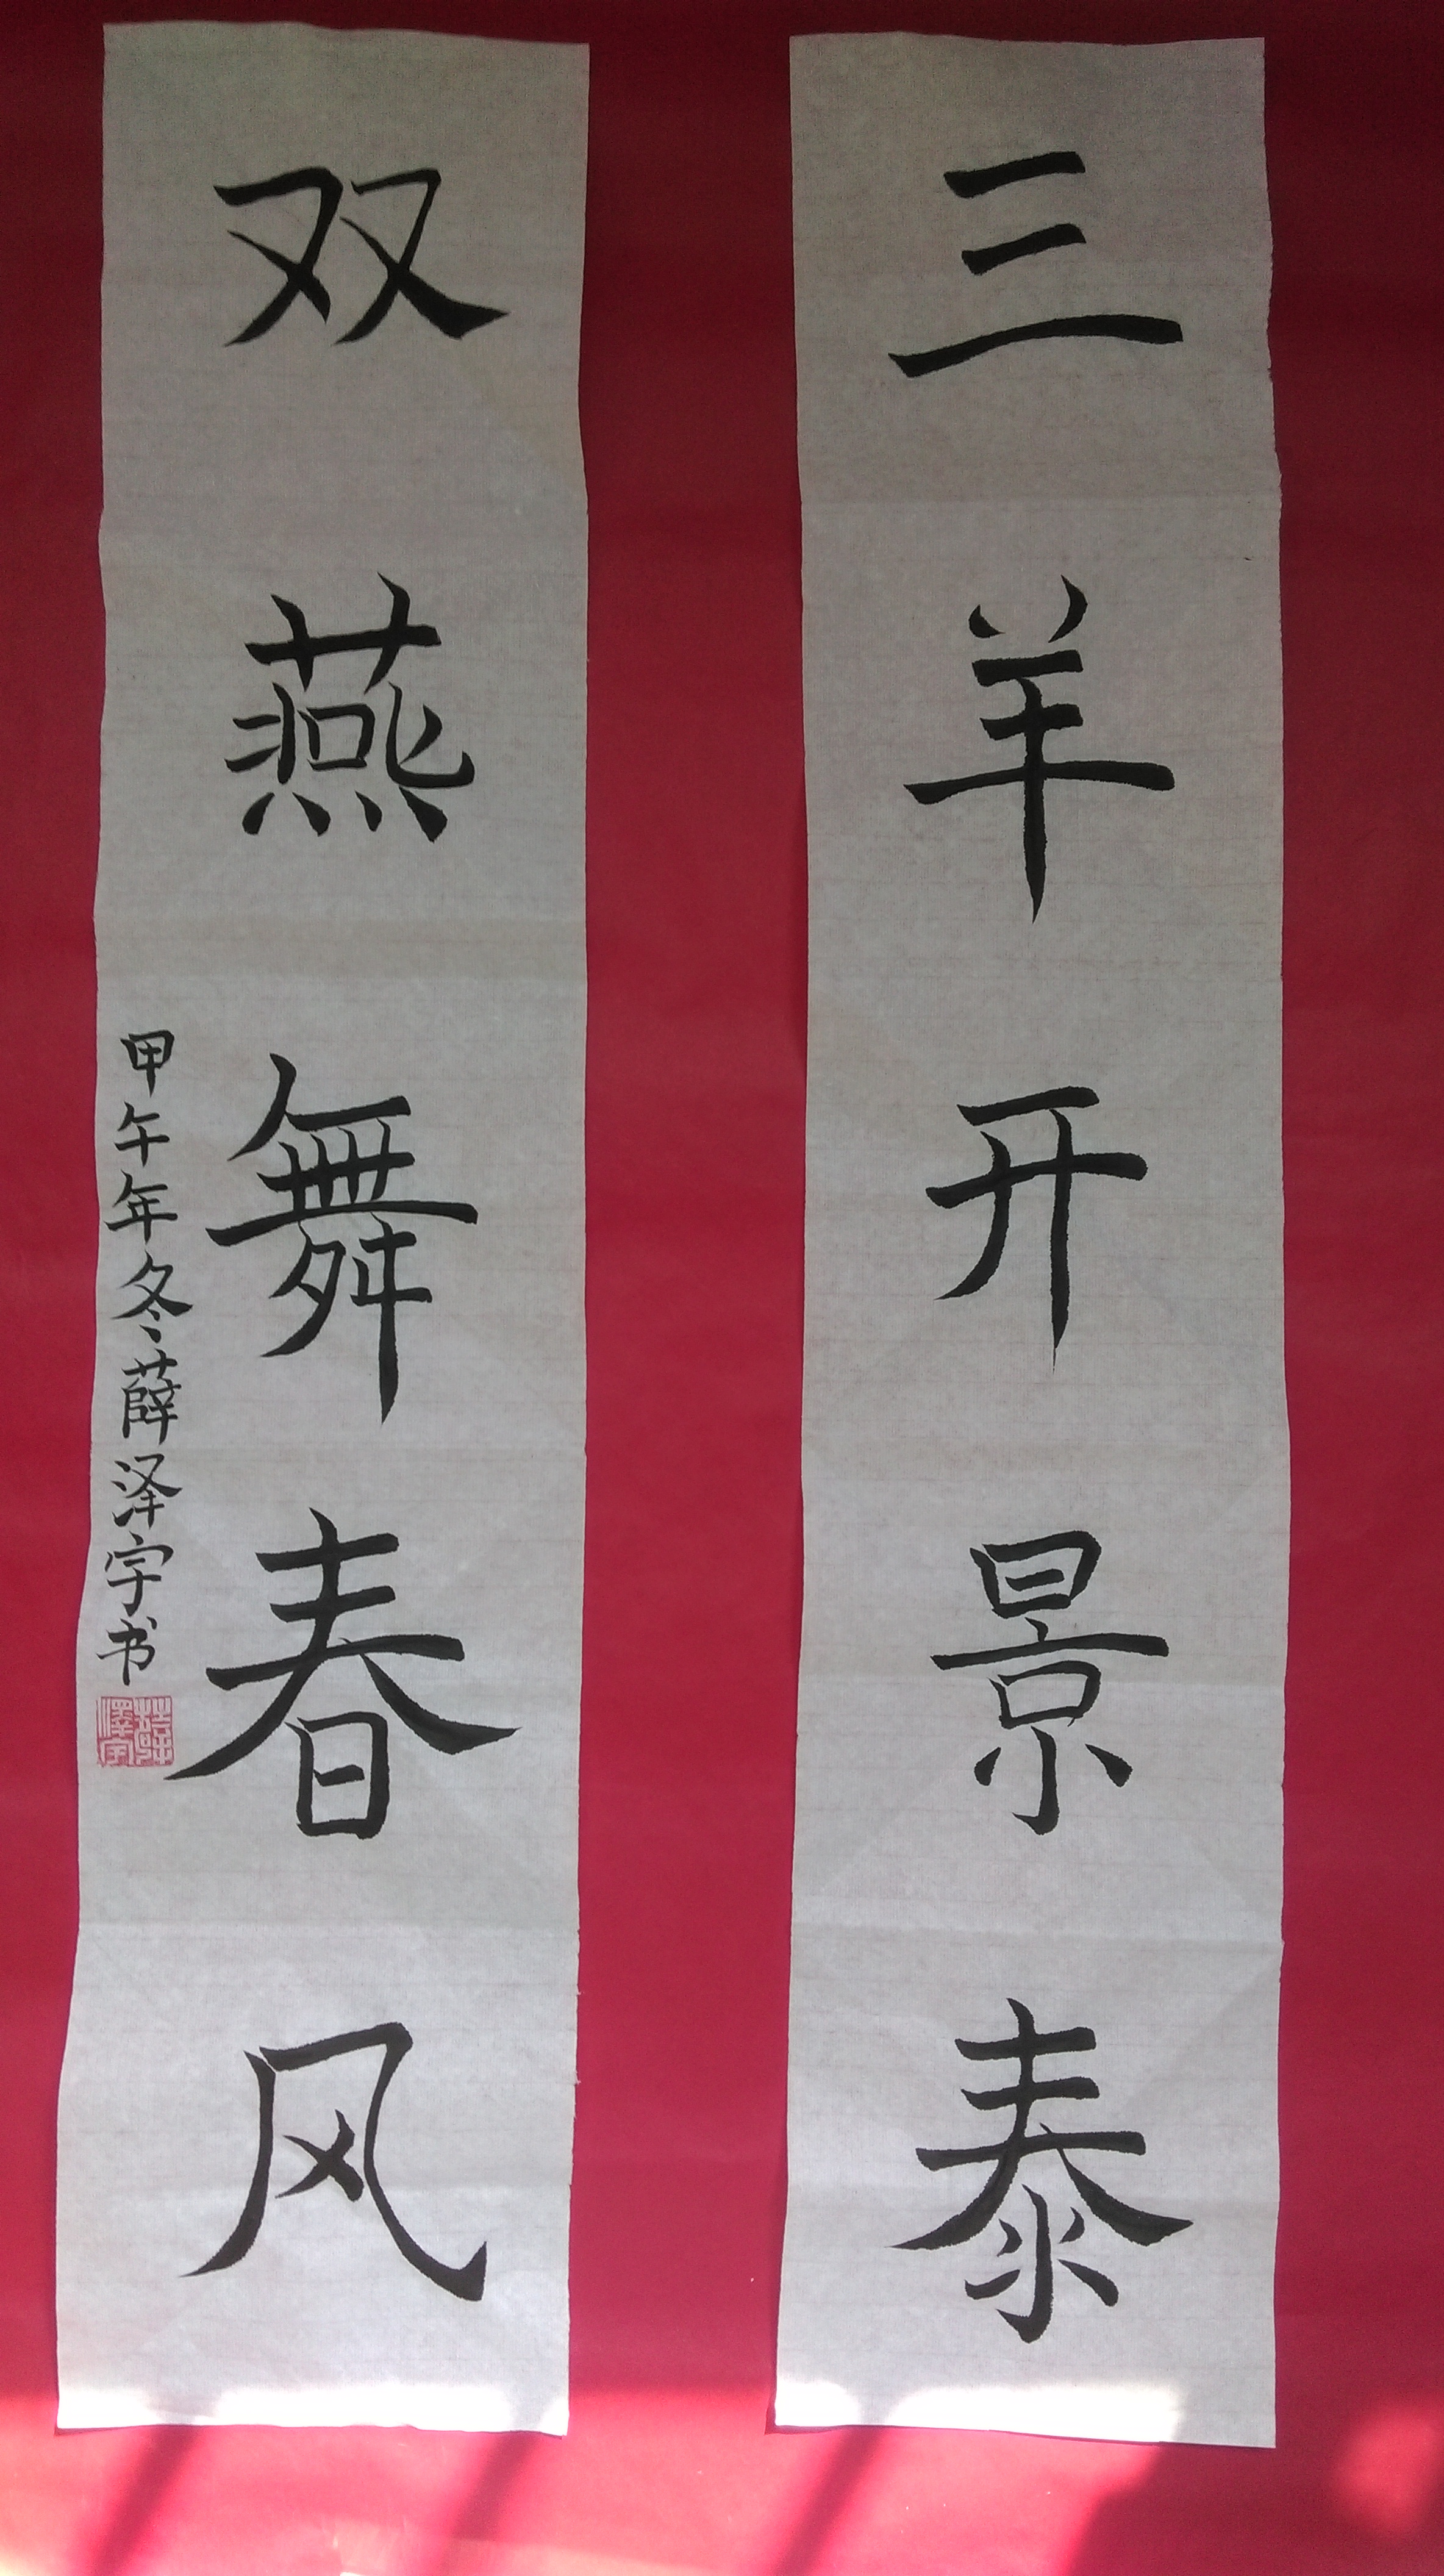 三羊开景泰
双燕舞春风
甲午年冬薛泽宇书
薛澤宇